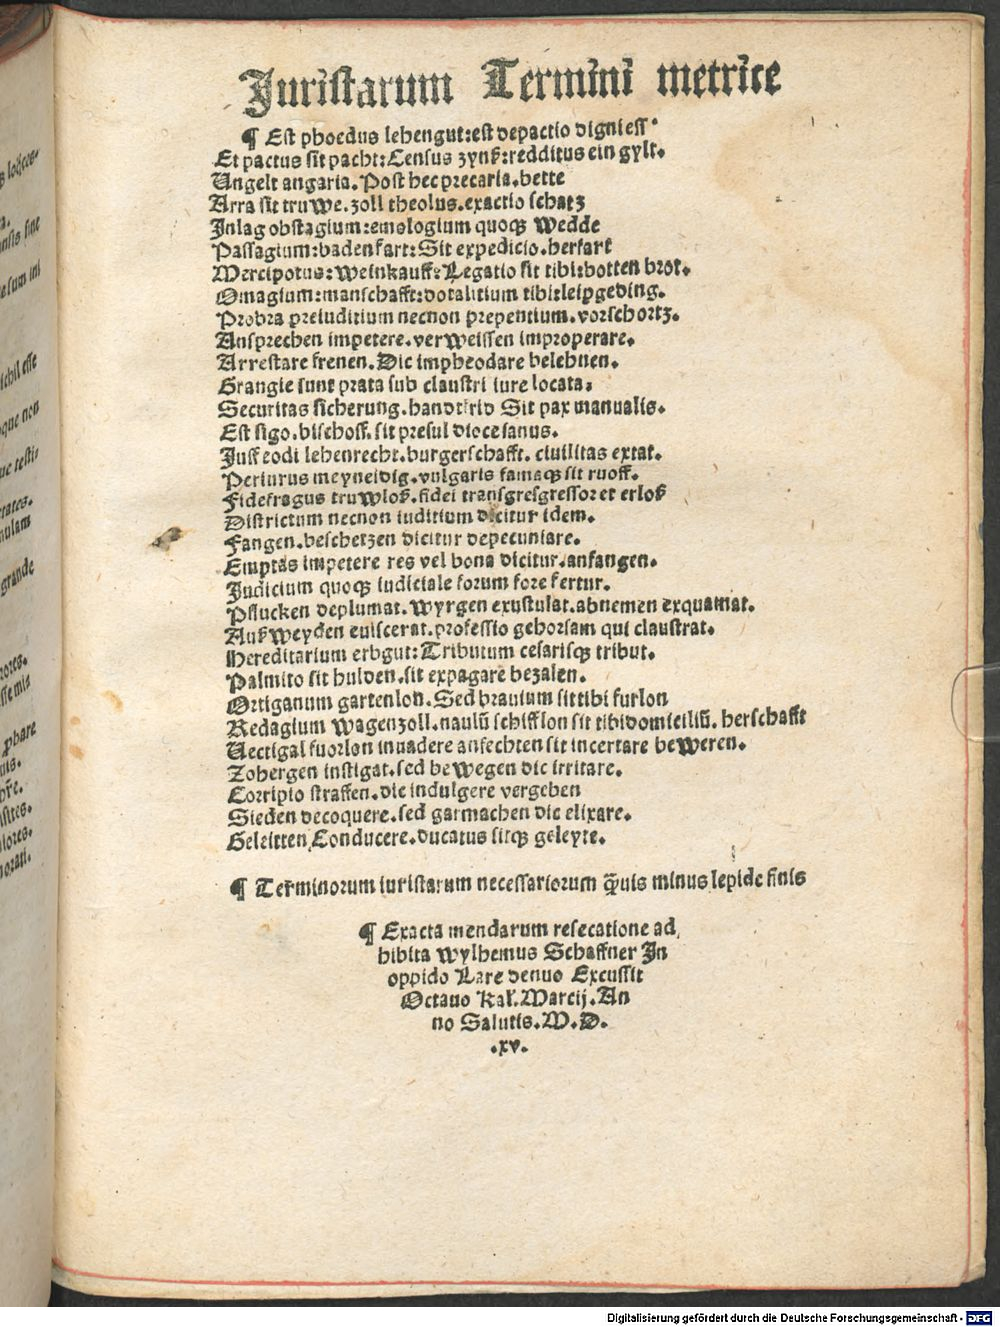 Juristarum Termini metrice
¶ Est phoedus lehengut:est depactio digniess
Et pactus sit pacht:Census zynß:redditus ein gylt.
Ungelt angaria.Post hec precaria.bette
Arra sit truwe.zoll theolus.exactio schatz
Inlag obstagium:emologium quoqꝫ wedde
Passagium:badenfart:Sit expedicio.herfart
Mercipotus:weinkauff:Legatio sit tibi:botten brot.
Omagium:manschafft:dotalitium tibi:leipgeding.
Probra preiuditium necnon prepentium.vorschortz.
Ansprechen impetere.verweissen improperare.
Arrestare frenen.Dic impheodare belehnen.
Grangie sunt prata sub claustri iure locata.
Securitas sicherung.handtfrid Sit pax manualis.
Est sigo.bischoff.sit presul diocesanus.
Jusfeodi lehenrecht.burgerschafft. ciuilitas extat.
Periurus meyneidig.vulgaris famaqꝫ sit ruoff.
Fidefragus truwloß.fidei transgresgressor et erloß
Districtum necnon iuditium dicitur idem.
Fangen.beschetzen dicitur depecuniare.
Emptas impetere res vel bona dicitur.anfangen.
Judicium quoqꝫ iudiciale forum fore fertur.
Pflucken deplumat.wyrgen exustulat.abnemen exquamat.
Außweyden euiscerat.professio gehorsam qui claustrat.
Hereditarium erbgut:Tributum cesarisqꝫ tribut.
Palmito sit hulden.sit expagare bezalen.
Ortiganum gartenlon.Sed brauium sit tibi furlon
Redagium wagenzoll.naulū schifflon sit tibi domiciliū. herschafft
Uectigal fuorlon inuadere anfechten sit incertare beweren.
Zohergen instigat.sed bewegen dic irritare.
Corripio straffen.dic indulgere vergeben
Sieden decoquere.sed garmachen dic elixare.
Geleitten Conducere.ducatus sitqꝫ geleyte.
¶ Terminorum iuristarum necessariorum q̄uis minus lepide finis
¶ Exacta mendarum resecatione ad
hibita wylhemus Schaffner In
oppido Lare denuo Excussit
Octauo Kal.Marcij.An
no Salutis.M.D.
.xv.
Digitalisierung gefördert durch die Deutsche Forschungsgemeinschaft - DFG